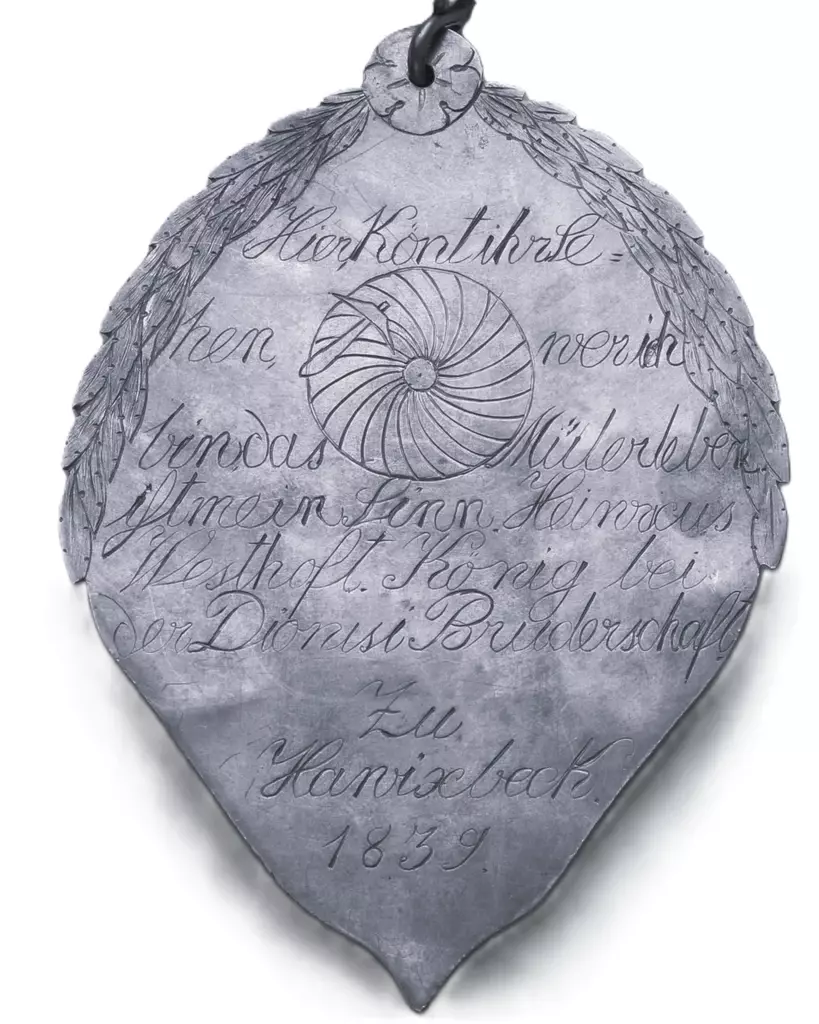 Hier Könt ihr Se=
hen, wer ich
bin, das Müllerleben
ist mein Sinn. Heinricus
Westhoft. König bei
der Dionisi Bruderschaft
Zu
Havixbeck.
1839.